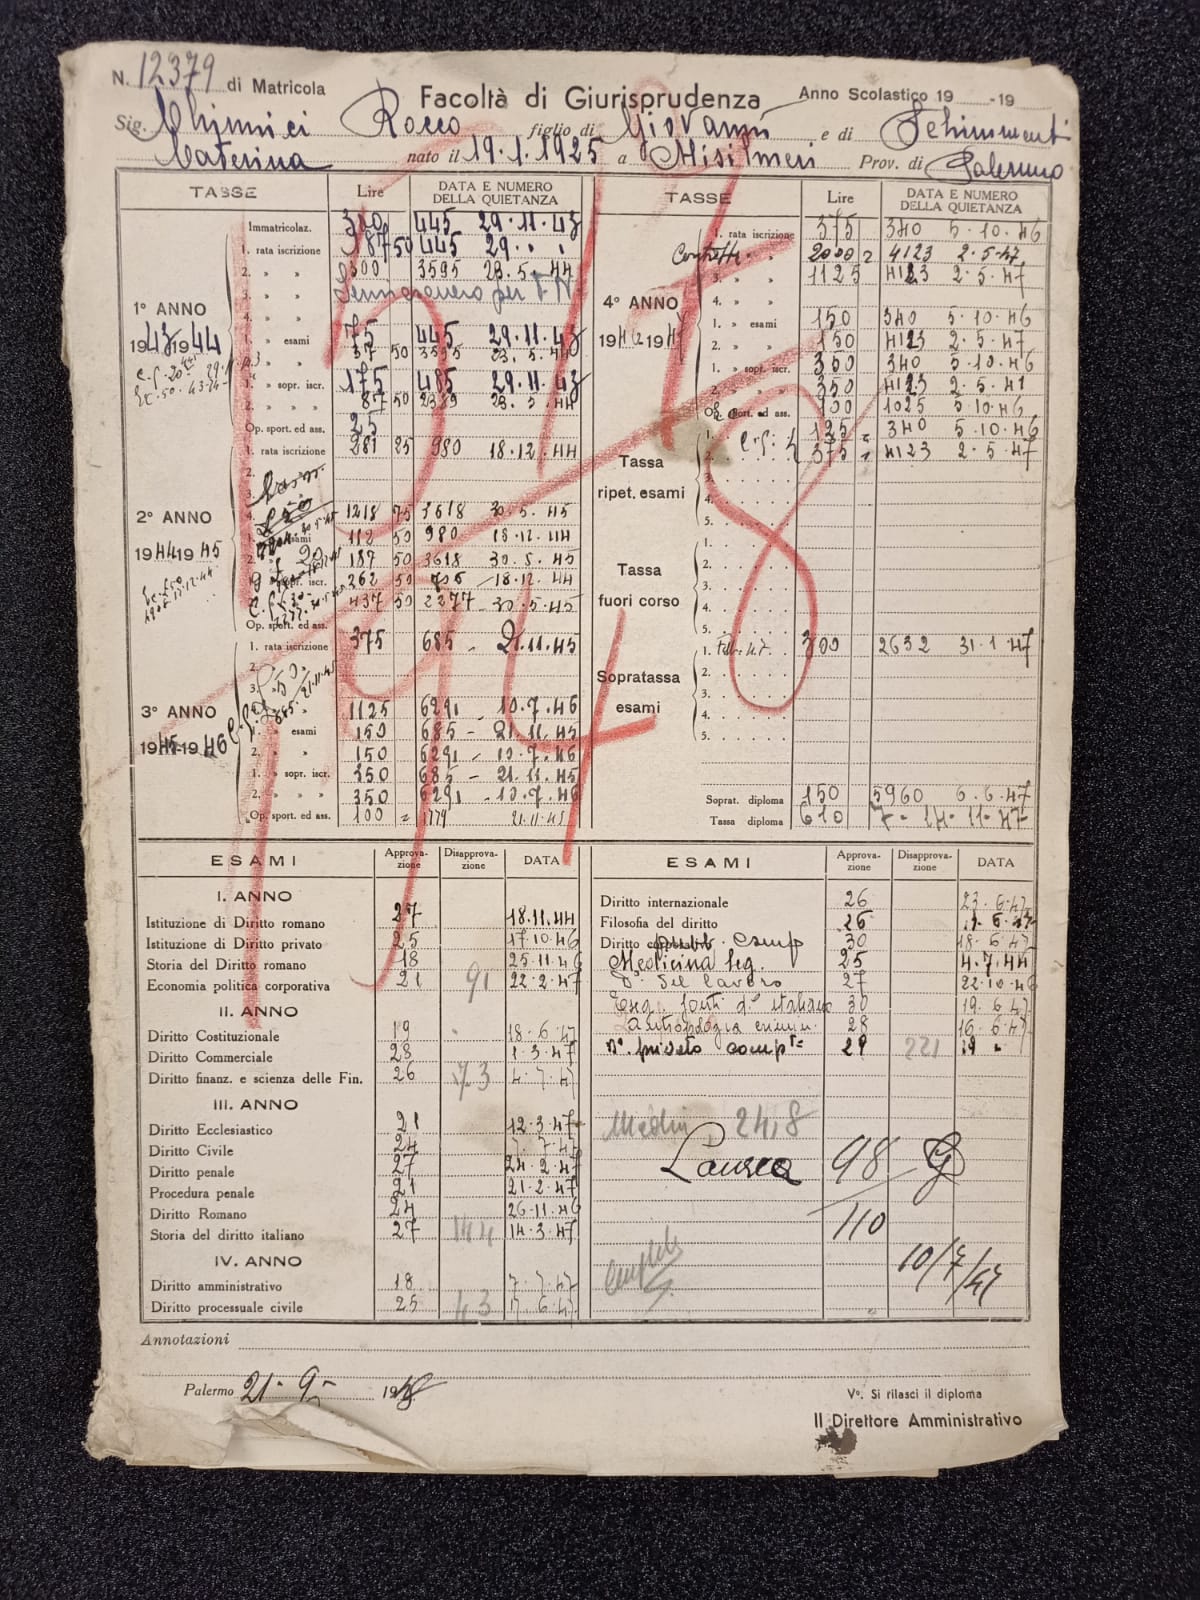 N. 12379 di Matricola
Facoltà di Giurisprudenza
Anno Scolastico 19 -19
Sig. Chinnici Rocco figlio di Giovanni e di Schimmenti
Caterina nato il 19.1.1925 a Misilmeri Prov. di Palermo
TASSE Lire DATA E NUMERO DELLA QUIETANZA
1° ANNO
1943 1944
Immatricolaz. 300 445 29.11.43
1. rata iscrizione 87 50 445 29 " "
2. » » 300 3595 23.5.44
3. » »
4. » »
1. » esami 75 445 29.11.43
37 50 3595 23.5.44
1. » sopr. iscr. 175 485 29.11.43
2. » » » 87 50
Op. sport. ed ass. 25
2° ANNO
1944 1945
1. rata iscrizione 281 25 980 18.12.44
2.
3.
4. 1218 75 3618 30.5.45
1. esami 112 50 980 18.12.44
2. 187 50 3618 30.5.45
262 50 18.12.44
437 50 2277 - 30.5.45
Op. sport. ed ass.
3° ANNO
1945-1946
1. rata iscrizione 375 685 - 21.11.45
2.
3.
1125 6291 - 10.7.46
1. » esami 150 685 - 21.11.45
2. 150 6291 - 10.7.46
1. » sopr. iscr. 350 685 - 21.11.45
2. » » » 350 6291 - 10.7.46
Op. sport. ed ass. 100 = 1779 21.11.45
TASSE Lire DATA E NUMERO DELLA QUIETANZA
4° ANNO
1. rata iscrizione 375 340 5.10.46
2000 = 4123 2.5.47
3. » » 1125 4123 2.5.47
4. » »
1. » esami 150 340 5.10.46
2. » » 150 4123 2.5.47
1. » sopr. iscr. 350 340 5.10.46
2. » » » 350 4123
Op. sport. ed ass. 100 1025 5.10.46
Tassa ripet. esami
1. 125 = 340 5.10.46
2. 375 = 4123 2.5.47
3.
4.
5.
Tassa fuori corso
1.
2.
3.
4.
5.
Sopratassa esami
1. Febb. 47 300 2632 31.1.47
2.
3.
4.
5.
Soprat. diploma 150 5960 6.6.47
Tassa diploma 610
1948
ESAMI Approvazione Disapprovazione DATA
I. ANNO
Istituzione di Diritto romano 27 18.11.44
Istituzione di Diritto privato 25 17.10.46
Storia del Diritto romano 18 25.11.46
Economia politica corporativa 21 91 22.2.47
II. ANNO
Diritto Costituzionale 19 18.6.47
Diritto Commerciale 28 1.3.47
Diritto finanz. e scienza delle Fin. 26 73 4.7.47
III. ANNO
Diritto Ecclesiastico 21 12.3.47
Diritto Civile 24 7.7.47
Diritto penale 27 24.2.47
Procedura penale 21 21.2.47
Diritto Romano 24 26.11.46
Storia del diritto italiano 27 144 14.3.47
IV. ANNO
Diritto amministrativo 18 7.7.47
Diritto processuale civile 25 43 6.47
ESAMI Approvazione Disapprovazione DATA
Diritto internazionale 26 23.6.47
Filosofia del diritto 26
Diritto pubb. comp 30 18.6.47
Medicina leg. 25 4.7.44
D° del lavoro 27 22.10.46
Eseg. fonti d° italiano 30 19.6.47
Antropologia crimin. 28 16.6.47
D° privato comp te= 29 221 19 "
Media 24,8
Laurea 98/110
10/7/47
Completo
Annotazioni
Palermo 21-9- 1948
V°. Si rilasci il diploma
Il Direttore Amministrativo